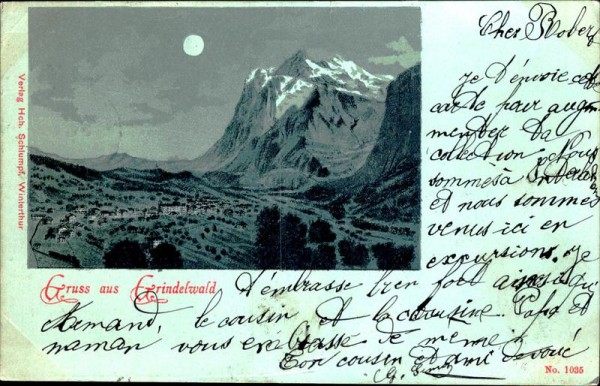 Cher Robert
Je t'envoie cette
carte pour augmenter
menter ta
collection. Nous
sommes à
et nous sommes
venus ici en
excursions. Je
Verlag Hch. Schlumpf, Winterthur
Gruss aus Grindelwald
t'embrasse bien fort ainsi qu'
Armand, le cousin et la cousine. Papa et
maman vous embrasse je me
Ton cousin et ami dévoué
No. 1035